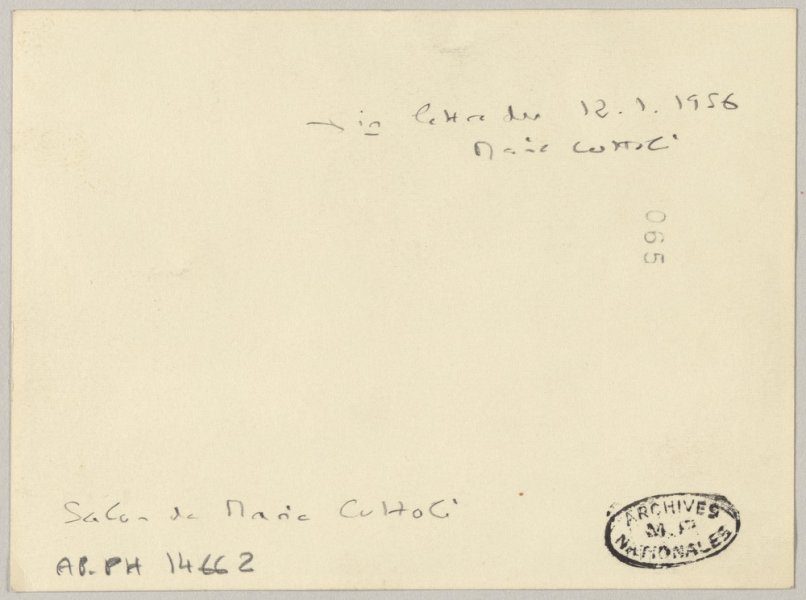 → in lettre du 12.1.1956
Marie Cuttoli
065
Salon de Marie Cuttoli
AP.PH 14662
ARCHIVES
M.P.
NATIONALES